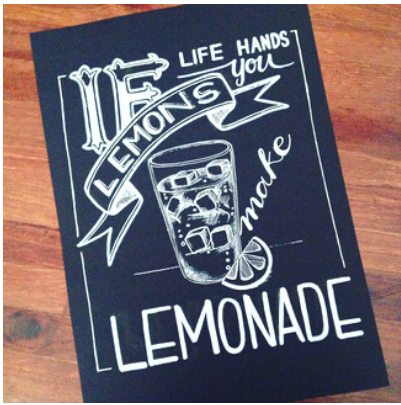 IF LIFE HANDS
you
LEMONS
make
LEMONADE